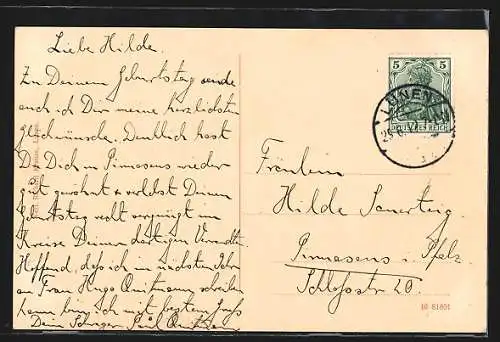 Liebe Hilde.
Zu Deinem Geburtstag sende
auch ich Dir meine herzlichsten
Glückwünsche. Hoffentlich hast
Du Dich in Pirmasens wieder
gut gewöhnt & verlebst Deinen
Geburtstag recht vergnügt im
Kreise Deiner dortigen Verwandten
Hoffend, dass ich im nächsten Jahr
an Frau Hugo schreiben
kann bin ich mit bestem Gruß
Dein
5 5
DEUTSCHES REICH
LÜNEN
Fräulein
Hilde
Pirmasens i. Pfalz
Schlossstr 20.
10 81801